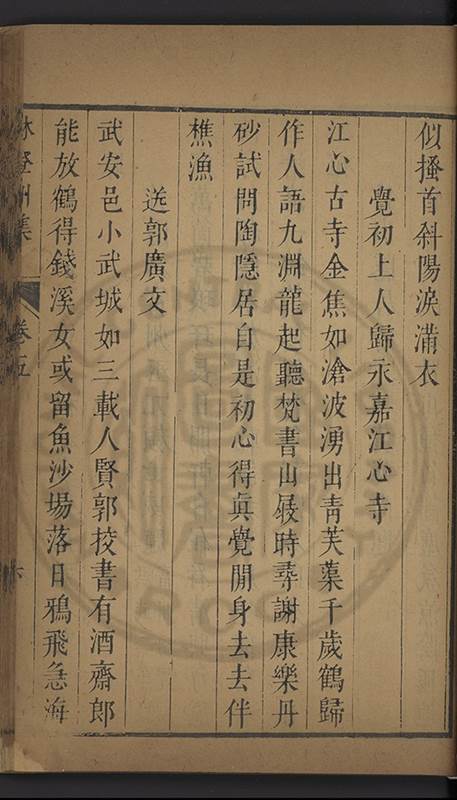 似搔首斜陽淚滿衣
覺初上人歸永嘉江心寺
江心古寺金焦如滄波湧出青芙蕖千歲鶴歸
作人語九淵龍起聽梵書山屐時尋謝康樂丹
砂試問陶隱居自是初心得真覺閒身去去伴
樵漁
送郭廣文
武安邑小武城如三載人賢郭挍書有酒齋郎
能放鶴得錢溪女或留魚沙場落日鴉飛急海
林登州集
卷五
六